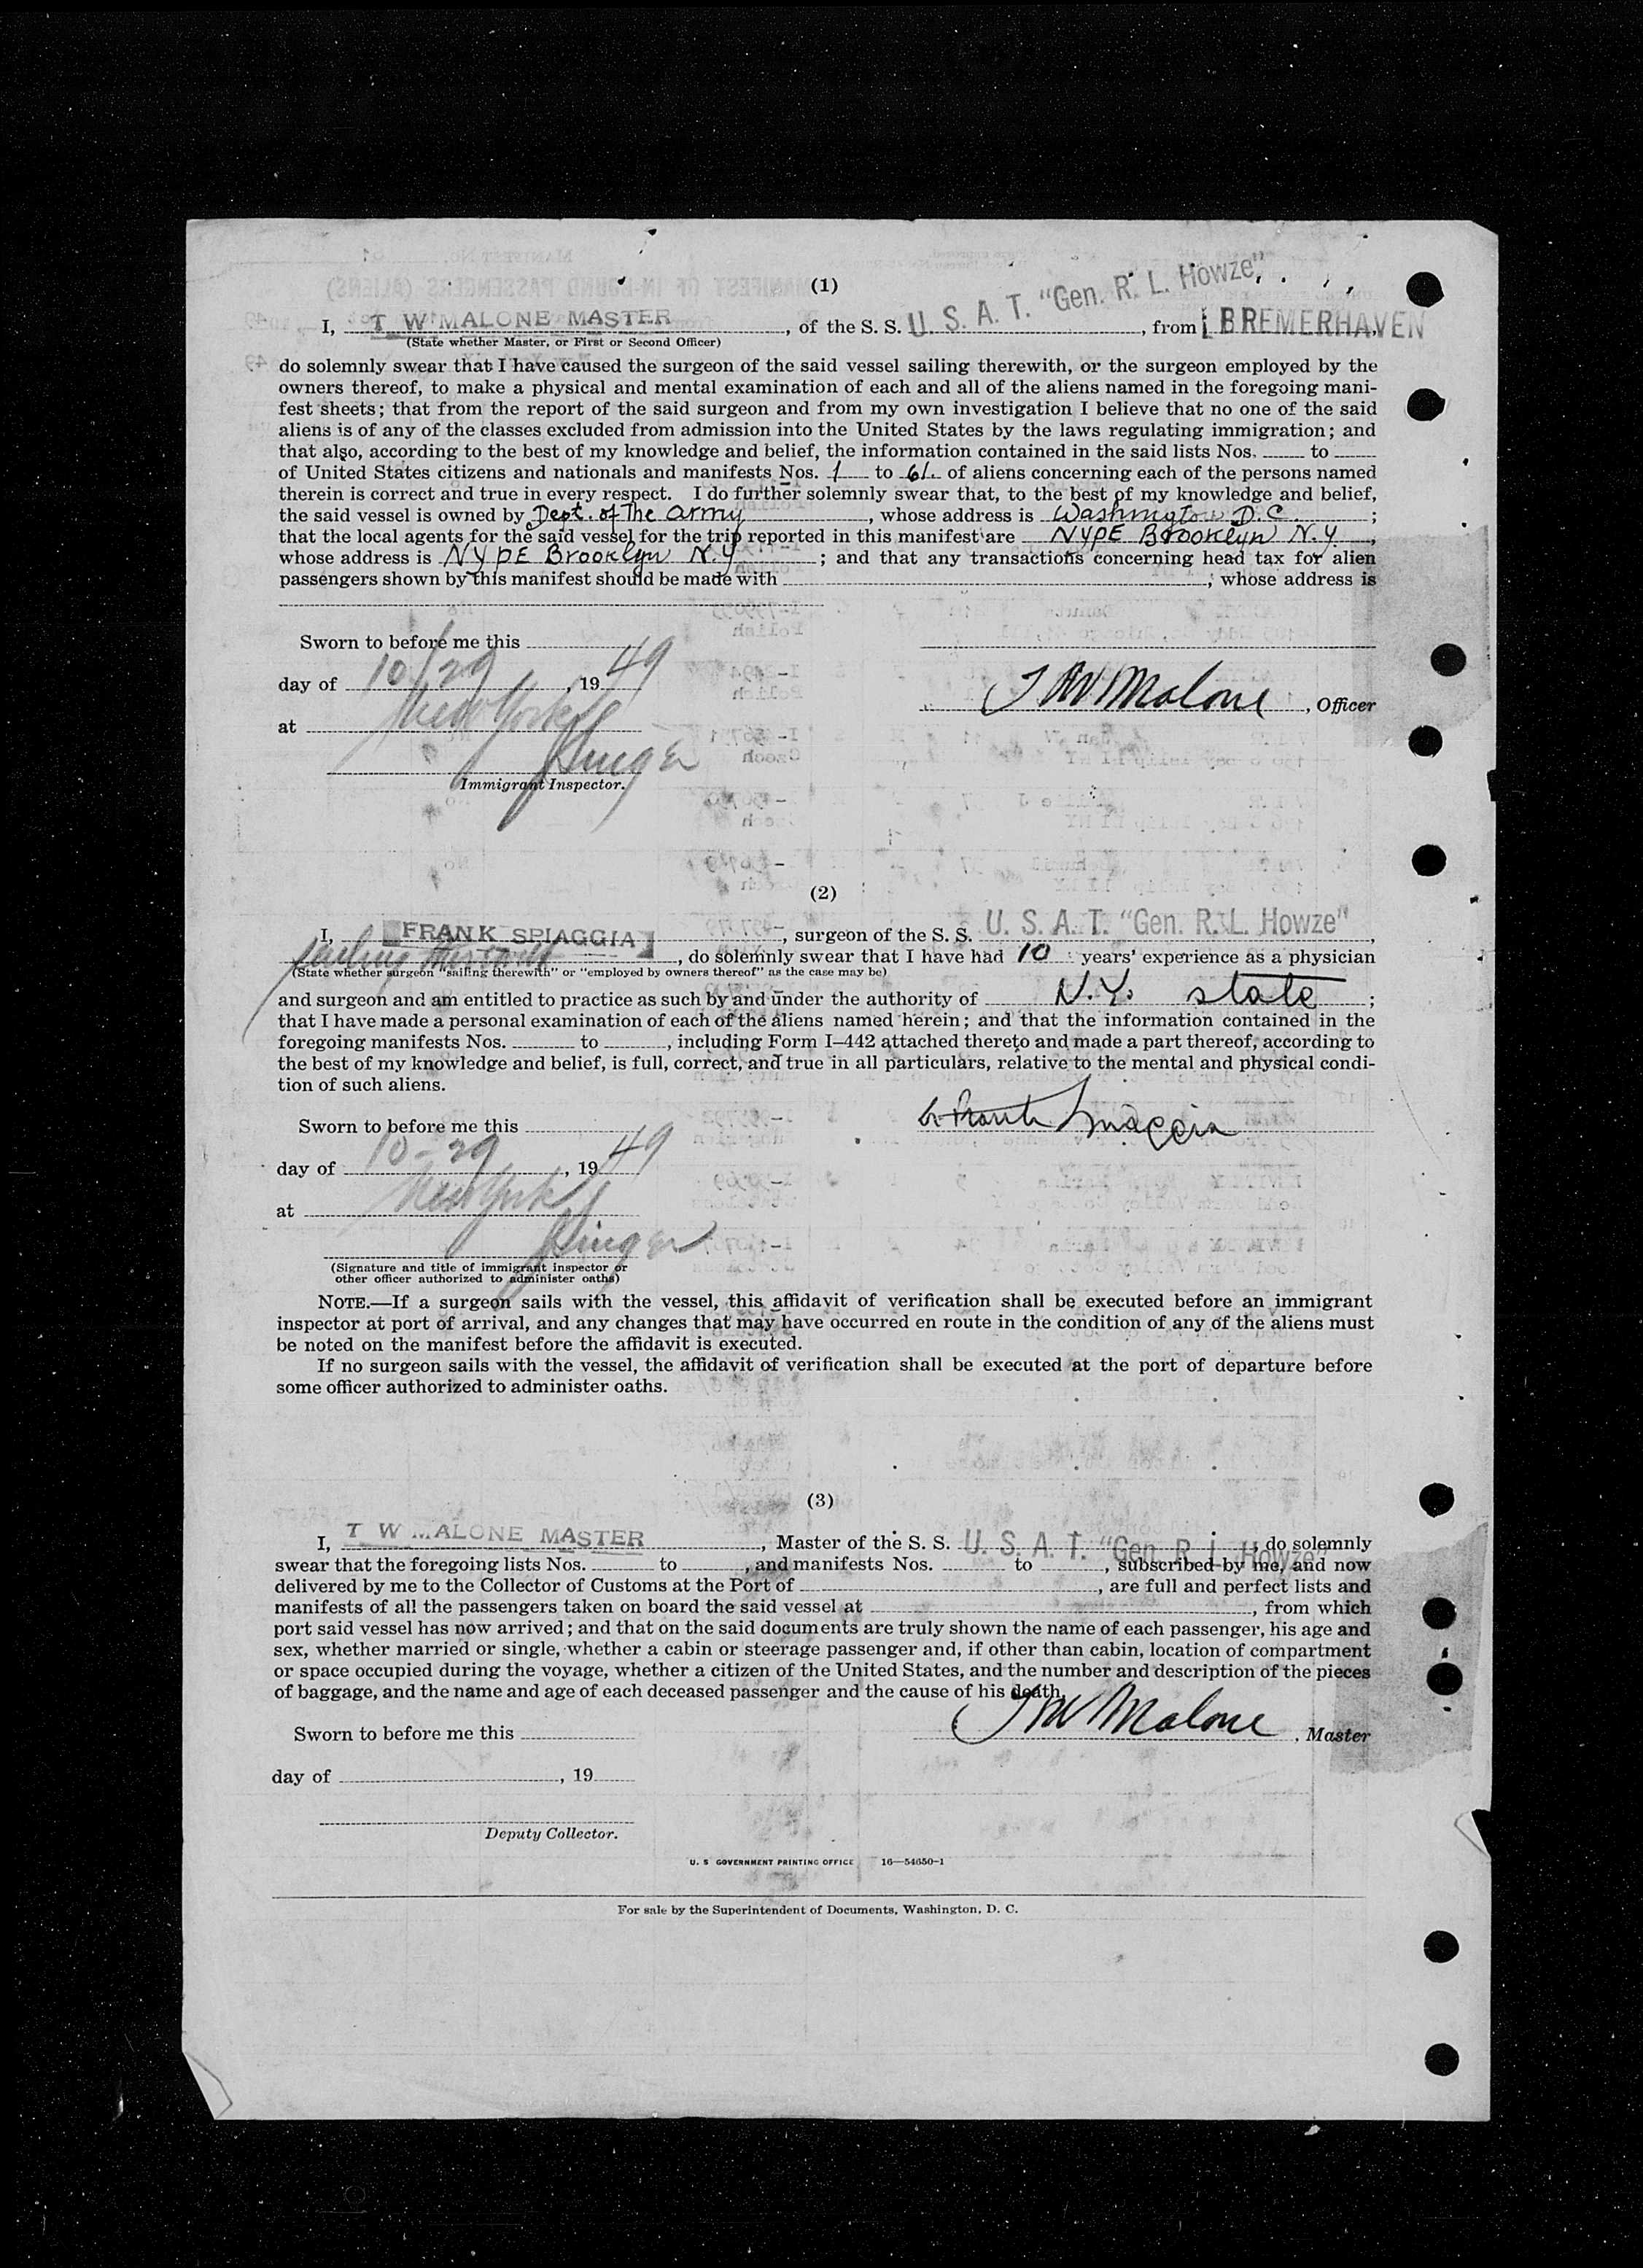 (1)
I, T W MALONE MASTER, of the S. S. U. S. A. T. "Gen. R. L. Howze", from BREMERHAVEN
(State whether Master, or First or Second Officer)
do solemnly swear that I have caused the surgeon of the said vessel sailing therewith, or the surgeon employed by the
owners thereof, to make a physical and mental examination of each and all of the aliens named in the foregoing mani-
fest sheets; that from the report of the said surgeon and from my own investigation I believe that no one of the said
aliens is of any of the classes excluded from admission into the United States by the laws regulating immigration; and
that also, according to the best of my knowledge and belief, the information contained in the said lists Nos. to
of United States citizens and nationals and manifests Nos. 1 to 61 of aliens concerning each of the persons named
therein is correct and true in every respect. I do further solemnly swear that, to the best of my knowledge and belief,
the said vessel is owned by Dept. of The Army, whose address is Washington D.C. ;
that the local agents for the said vessel for the trip reported in this manifest are NYPE Brooklyn N.Y.,
whose address is NYPE Brooklyn N.Y ; and that any transactions concerning head tax for alien
passengers shown by this manifest should be made with , whose address is
Sworn to before me this
day of 10/29, 1949
T W Malone, Officer
at New York
Singer
Immigrant Inspector.
(2)
I, FRANK SPIAGGIA, surgeon of the S. S. U. S. A. T. "Gen. R. L. Howze",
sailing therewith, do solemnly swear that I have had 10 years' experience as a physician
(State whether surgeon "sailing therewith" or "employed by owners thereof" as the case may be)
and surgeon and am entitled to practice as such by and under the authority of N.Y. state ;
that I have made a personal examination of each of the aliens named herein; and that the information contained in the
foregoing manifests Nos. to , including Form I–442 attached thereto and made a part thereof, according to
the best of my knowledge and belief, is full, correct, and true in all particulars, relative to the mental and physical condi-
tion of such aliens.
Frank Spiaggia
Sworn to before me this
day of 10-29, 1949
at New York
Singer
(Signature and title of immigrant inspector or
other officer authorized to administer oaths)
NOTE.—If a surgeon sails with the vessel, this affidavit of verification shall be executed before an immigrant
inspector at port of arrival, and any changes that may have occurred en route in the condition of any of the aliens must
be noted on the manifest before the affidavit is executed.
If no surgeon sails with the vessel, the affidavit of verification shall be executed at the port of departure before
some officer authorized to administer oaths.
(3)
I, T W MALONE MASTER, Master of the S. S. U. S. A. T. "Gen. R. L. Howze", do solemnly
swear that the foregoing lists Nos. to , and manifests Nos. to , subscribed by me, and now
delivered by me to the Collector of Customs at the Port of , are full and perfect lists and
manifests of all the passengers taken on board the said vessel at , from which
port said vessel has now arrived; and that on the said documents are truly shown the name of each passenger, his age and
sex, whether married or single, whether a cabin or steerage passenger and, if other than cabin, location of compartment
or space occupied during the voyage, whether a citizen of the United States, and the number and description of the pieces
of baggage, and the name and age of each deceased passenger and the cause of his death.
T W Malone, Master
Sworn to before me this
day of , 19
Deputy Collector.
U. S GOVERNMENT PRINTING OFFICE 16—54650-1
For sale by the Superintendent of Documents, Washington, D. C.